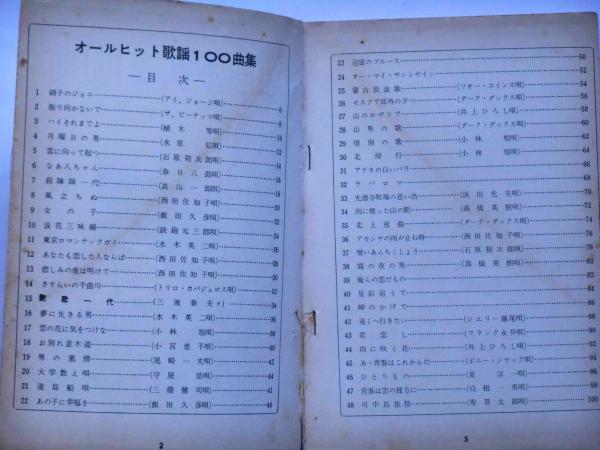 オールヒット歌謡100曲集
―目 次―
1 硝子のジョニー (アイ、ジョージ唄) 6
2 振り向かないで (ザ、ピーナッツ唄) 8
3 ハイそれまでよ (植木 等唄)
4 月曜日の男 (水原 弘唄) 12
5 雲に向って起つ (石原裕次郎唄) 14
6 なあ八ちゃん (春日八郎唄) 16
7 殺陣師一代 (真山一郎唄) 18
8 風立ちぬ (西田佐知子唄) 20
9 女の子 (飯田久彦唄) 22
10 浪花三味線 24
11 東京ロマンチックガイ (水木英二唄) 26
12 あなたも恋した人ならば (西田佐知子唄) 28
13 悲しみの夜は明けて (西田佐知子唄) 30
14 さすらいの千曲川 (トリロ・カバジェロス唄) 32
15 艶歌一代 (三波春夫〃) 34
16 夢に生きる男 (水木英二唄) 36
17 恋の花に気をつけな (小林 旭唄) 38
18 お別れ並木道 (小宮恵子唄) 40
19 男の裏情 (尾崎一夫唄) 42
20 大学数え唄 (守屋 浩唄) 44
21 遠島船唄 (三橋健司唄) 46
22 あの子に幸福を (飯田久彦唄) 48
2
23 追憶のブルース 50
24 オー・マイ・サンシヤイン 52
25 蒙古放浪歌 (フオー・コインズ唄) 54
26 モスクワ郊外の夕べ (ダーク・ダックス唄) 56
27 山のロザリア (井上ひろし唄) 58
28 山男の歌 (ダーク・ダックス唄) 60
29 惜別の歌 (小林 旭唄) 62
30 北帰行 (小林 旭唄) 64
31 アテネの白いバラ 66
32 ラパロマ 68
33 光徳寺牧場の思い出 (浜田光夫唄) 70
34 雨に煙った山の駅 (高橋英樹唄) 72
35 北上夜曲 (ダーク・ダックス唄) 74
36 アカシヤの雨が止む時 (西田佐知子唄) 76
37 憎いあんちくしょう (石原裕次郎唄) 78
38 霧の夜の男 (高橋英樹唄) 80
39 俺らの恋だもの 82
40 星影追うて 84
41 岬のかげで 86
42 遠くへ行きたい (ジェリー藤尾唄) 88
43 君恋し (フランク永井唄) 90
44 雨に咲く花 (井上ひろし唄) 92
45 あゝ青春はこれからだ (ボニー・ジャック唄) 94
46 ひとりもの (夏 洋一唄) 96
47 青春は雲の彼方に (白根一男唄) 98
48 川中島旅情 (寿賀太郎唄) 100
3